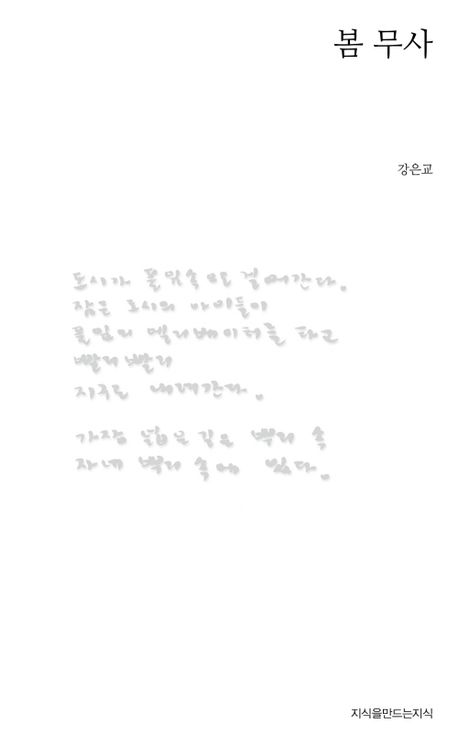 봄 무사
강은교
도시가 풀잎 속으로 걸어간다.
잠든 도시의 아이들이
풀잎의 엘리베이터를 타고
빨리 빨리
지구로 내려간다.
가장 넓은 길은 뿌리 속
자네 뿌리 속에 있다.
지식을만드는지식